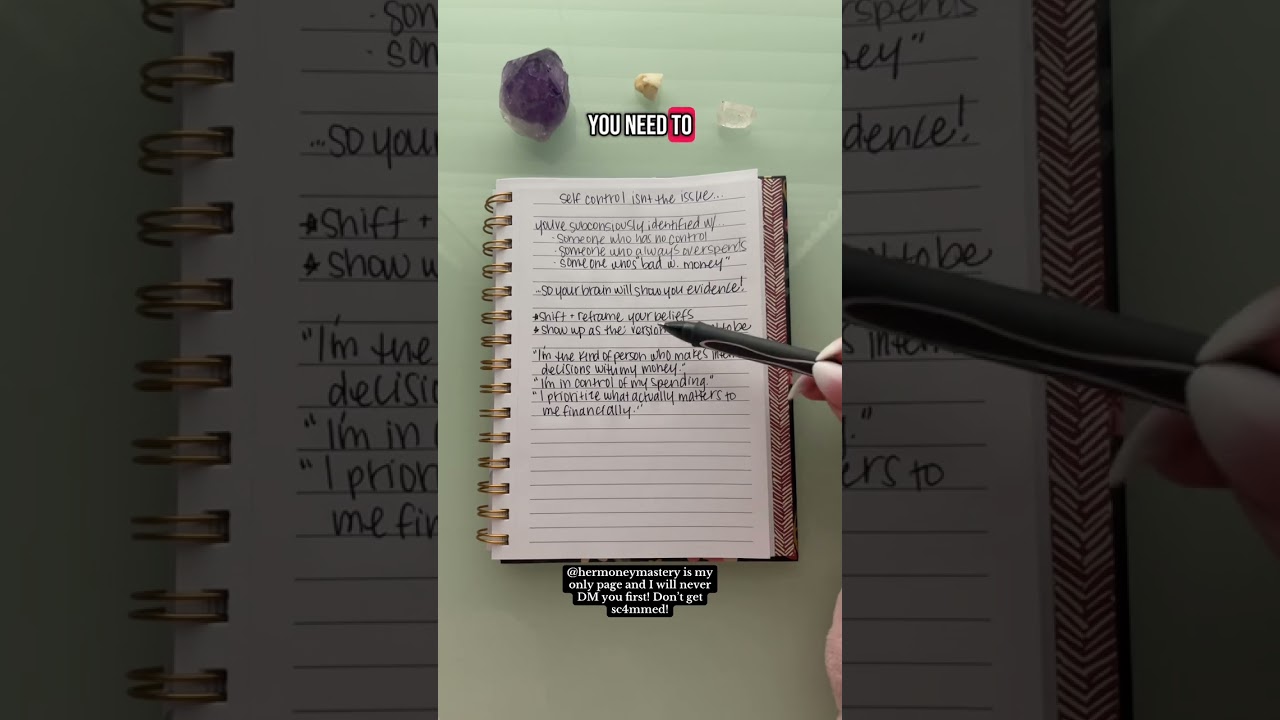 YOU NEED TO
self control isnt the issue...
you've subconsiously identified w/...
· someone who has no control
· someone who always overspends
· someone who's bad w. money"
...so your brain will show you evidence!
*shift + reframe your beliefs
*show up as the version to be
"I'm the kind of person who makes inten
decisions with my money."
"I'm in control of my spending."
"I prioritize what actually matters to
me financially."
@hermoneymastery is my
only page and I will never
DM you first! Don't get
sc4mmed!